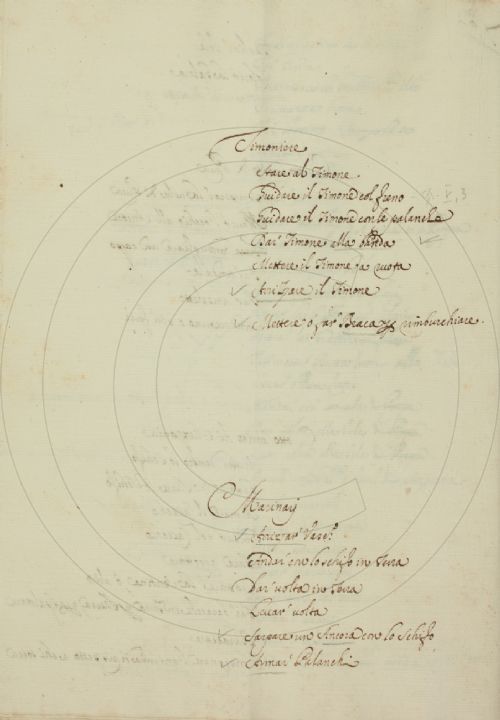 Timoniere
Stare al Timone.
Guidare il Timone col freno
Guidare il Timone con le palanche
Dar' Timone alla banda
Mettere il Timone a ruota
il Timone
Mettere o far' Braca rimburchiare.
Marinaij
Andar' con lo schifo in Terra
Dar' volta in Terra
Levar' volta
Sarpare un Ancora con lo Schifo
Armar' Palanchi